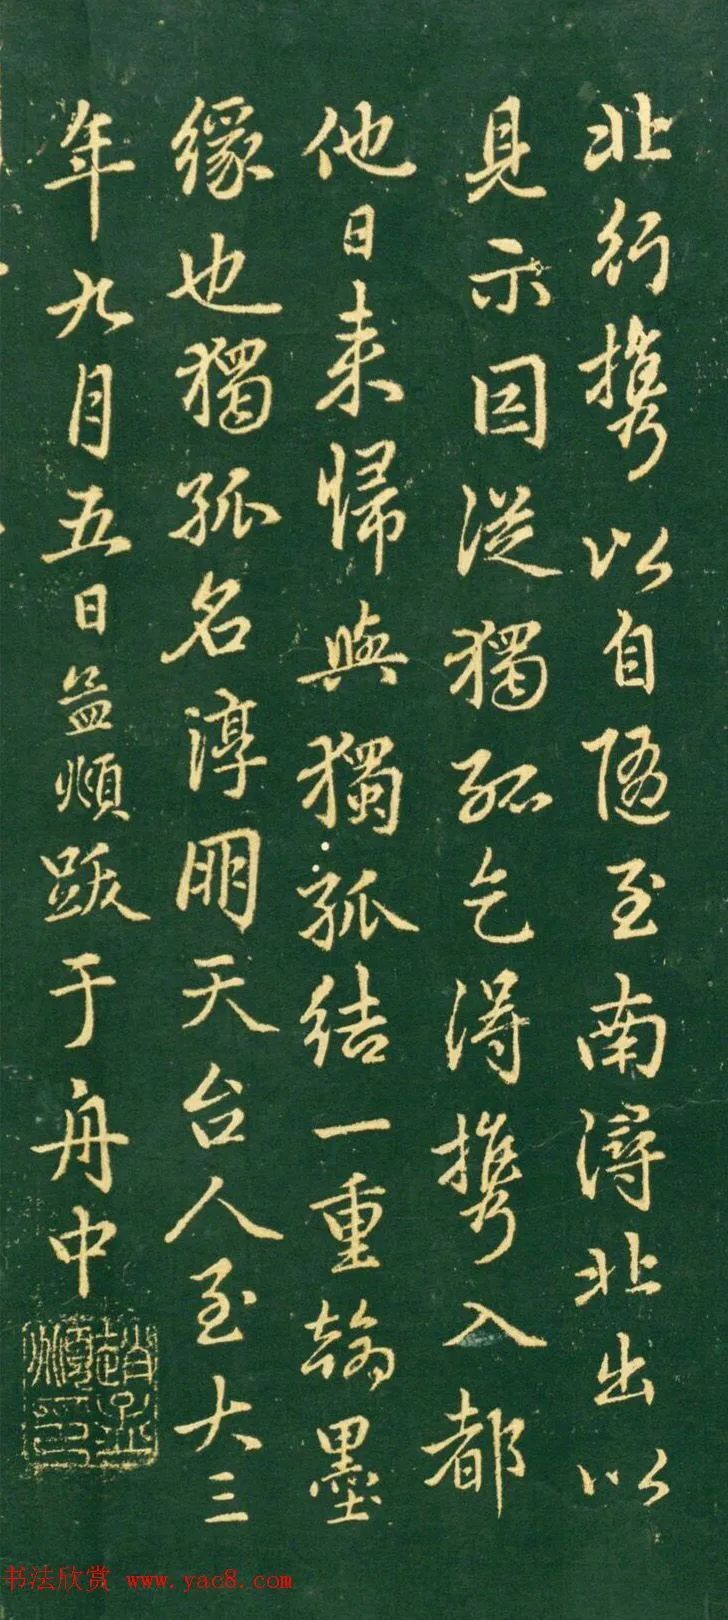 北行携以自随至南潯北出以
見示因從獨孤乞得携入都
他日来歸與獨孤結一重翰墨
緣也獨孤名淳朋天台人至大三
年九月五日孟頫跋于舟中
趙孟頫印
书法欣赏 www.yac8.com